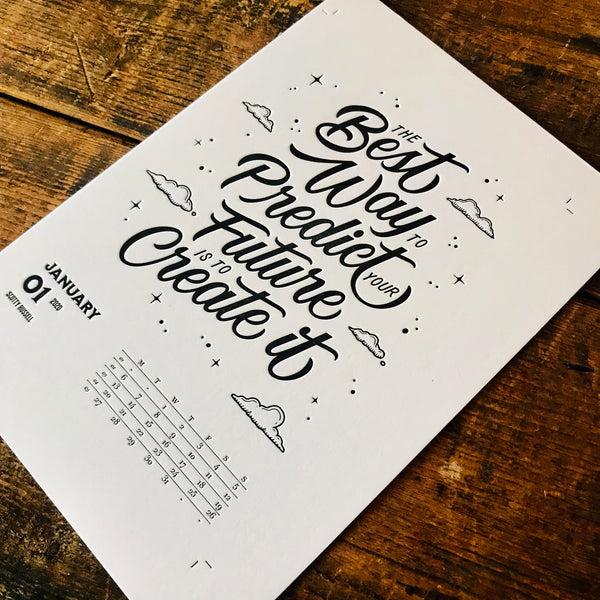 THE
Best
Way TO
Predict
YOUR
Future
IS TO
Create it
JANUARY
01 2020
SCOTTY RUSSELL
M T W T F S S
01 . . 1 2 3 4 5
02 6 7 8 9 10 11 12
03 13 14 15 16 17 18 19
04 20 21 22 23 24 25 26
05 27 28 29 30 31 . .